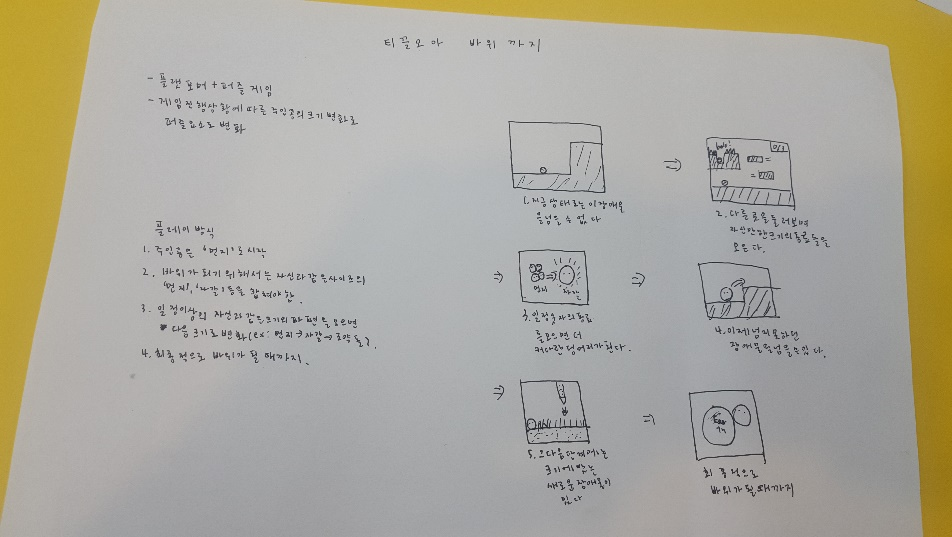 티끌모아 바위까지
- 플랫포머 + 퍼즐 게임
- 게임진행상황에 따른 주인공의 크기 변화로
퍼즐요소도 변화
플레이 방식
1. 주인공은 '먼지'로 시작
2. 바위가 되기 위해서는 자신과 같은 사이즈의
'먼지', '자갈' 등을 합쳐야 함.
3. 일정이상의 자신과 같은크기의 파편을 모으면
다음 크기로 변화(ex: 먼지 → 자갈 →
4. 최종적으로 바위가 될 때까지.
1. 지금상태로는 이장애물
을넘을 수 없다
0/1
=
=
2. 다른 곳을 둘러보며
자신만한크기의 동료들을
모은다.
먼지
자갈
3. 일정숫자의 동료
를모으면 더
커다란 덩어리가된다.
4. 이제 넘지 못하던
장애물을 넘을수있다.
5. 그다음단계에는
크기에맞는
새로운 장애물이
있다
최종적으로
바위가될때까지